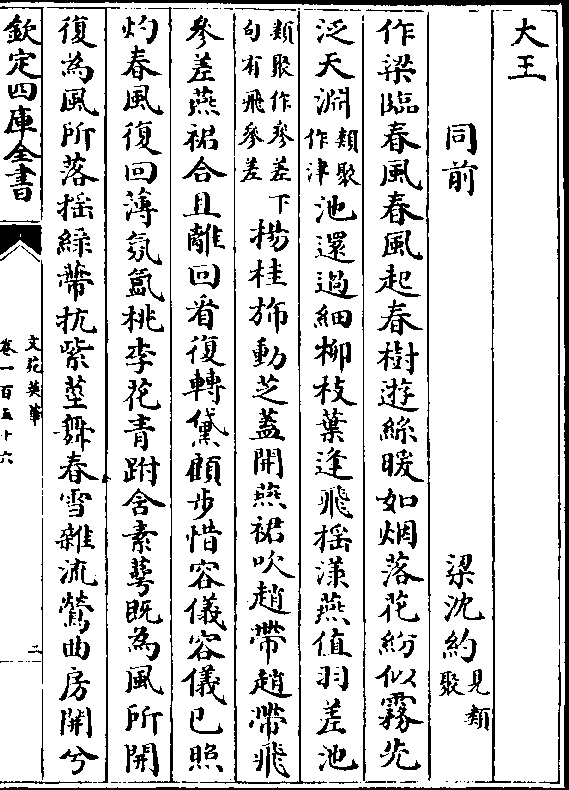 大王
同前 梁沈約見類聚
作梁臨春風春風起春樹遊絲暖如烟落花紛似霧先
泛天淵類聚作津池還過細柳枝葉逢飛摇漾燕值羽差池
類聚作參差下句有飛參差楊桂斾動芝蓋開燕裾吹趙帶趙帶飛
參差燕裾合且離回看復轉黛顧步惜容儀容儀已照
灼春風復回薄氛氳桃李花青跗含素蕚既為風所開
復為風所落摇綠蔕抗紫莖舞春雪雜流鶯曲房開兮
欽定四庫全書
文苑英華
卷一百五十六
二